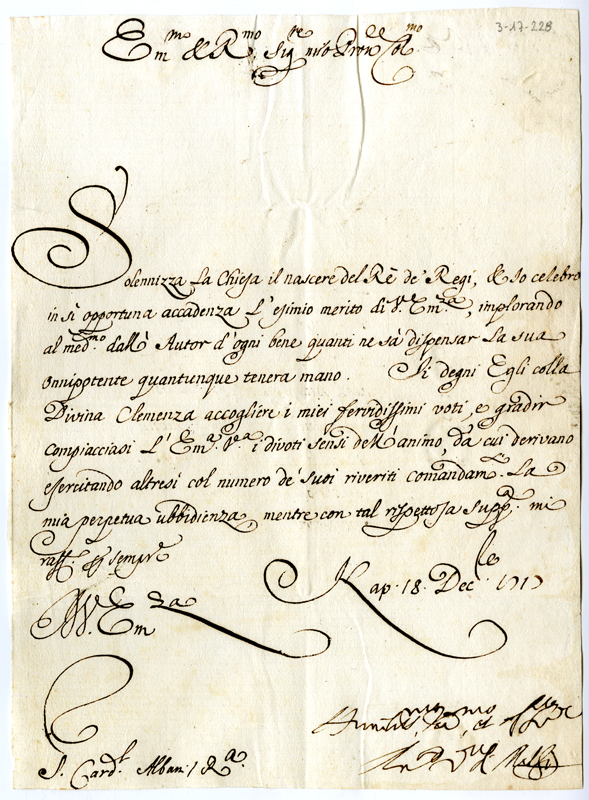 3-17-228
Em.mo & R.mo Sig.re nro Pron Col.mo
Solennizza La Chiesa il nascere del Rè de' Regi, & Io celebro
in sì opportuna accadenza L'esimio merito di V. Em.za, implorando
al med.mo dallo Autor d'ogni bene quanti ne sà dispensar La sua
onnipotente quantunque tenera mano. Si degni Egli colla
Divina Clemenza accogliere i miei fervidissimi voti, e gradir
compiacciasi L'Em.a V.a i divoti sensi dell'animo, da cui derivano
esercitando altresì col numero de' suoi riveriti comandam.ti La
mia perpetua ubbidienza, mentre con tal rispettosa supp.a mi
raff. sempre
V. Em.za
Nap. 18. Dec.le 1717
S. Card.l Albani